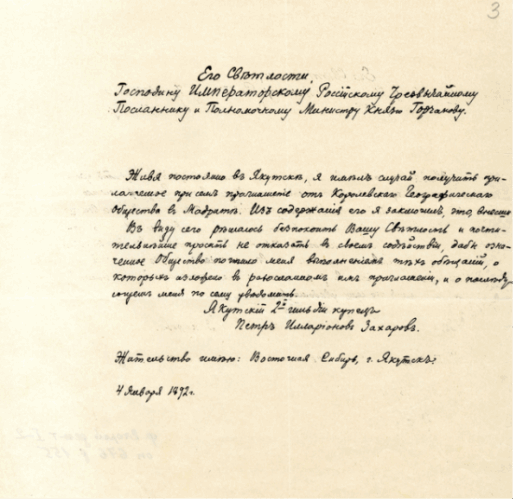 3
Его Свѣтлости,
Господину Императорскому Россійскому Чрезвычайному
Посланнику и Полномочному Министру Князю Горчакову.
Живя постоянно въ Якутскѣ, я имѣлъ случай получить при-
лагаемое при семъ приглашеніе отъ Королевскаго Географическаго
общества въ Мадритѣ. Изъ содержанія его я заключилъ, что
Въ виду сего рѣшаюсь безпокоить Вашу Свѣтлость и почти-
тельнѣйше просить не отказать въ своемъ содѣйствіи, дабы озна-
ченное Общество меня тѣхъ о
которыхъ изложено въ имъ приглашеніи, и о
меня по сему увѣдомить.
Якутскій 2й гильдіи купецъ
Петръ Илларіоновъ Захаровъ.
Жительство имѣю: Восточная Сибирь, г. Якутскъ.
4 Января 1892 г.